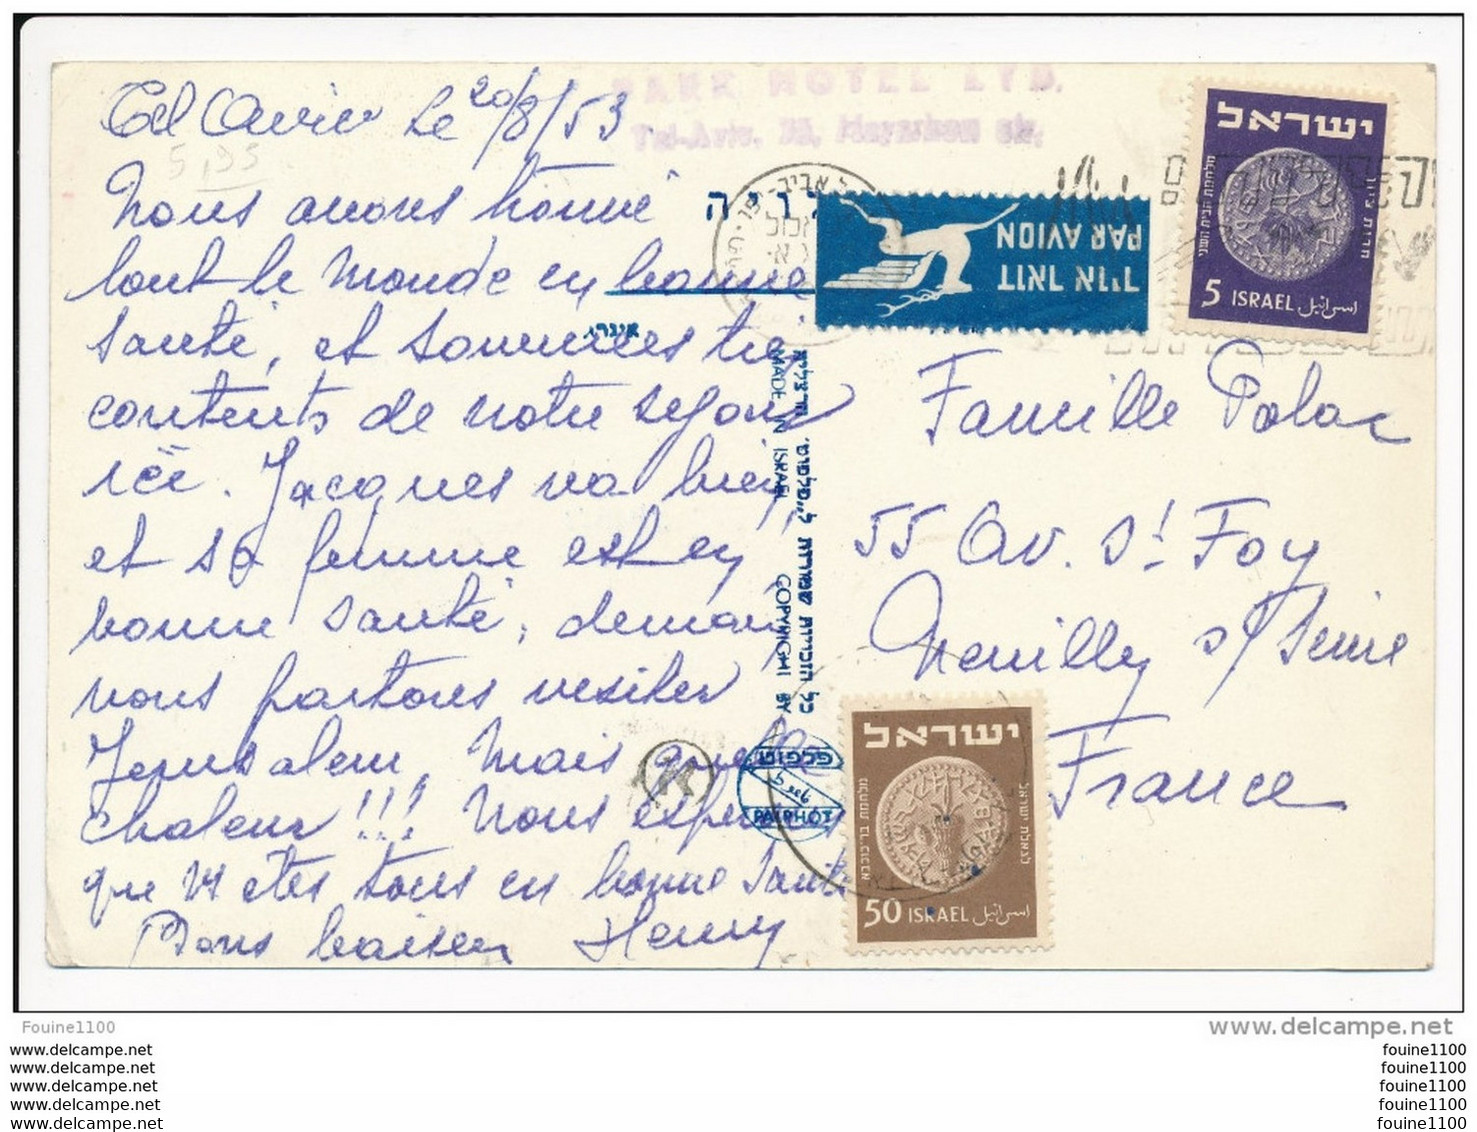 Tel Aviv le 20/8/53
5,95
PARK HOTEL LTD.
Tel-Aviv,
Nous avons trouvé
tout le monde en bonne
santé, et sommes très
contents de notre séjour
ici. Jacques va bien,
et sa femme est en
bonne santé, demain
nous partons visiter
Jerusalem, mais quelle
chaleur!!! Nous espérons
que vs êtes tous en bonne santé
Bons baisers Henry
גלויה
MADE IN ISRAEL COPYRIGHT BY
כל הזכויות שמורות ל„פלפוט" הרצליה
פלפוט
PALPHOT
דואר אויר
PAR AVION
ישראל
5 ISRAEL اسرائيل
Famille Polac
55 Av. St Foy
Neuilly s/Seine
France
ישראל
50 ISRAEL اسرائيل
Fouine1100
www.delcampe.net
www.delcampe.net
www.delcampe.net
www.delcampe.net
www.delcampe.net
www.delcampe.net
fouine1100
fouine1100
fouine1100
fouine1100
fouine1100